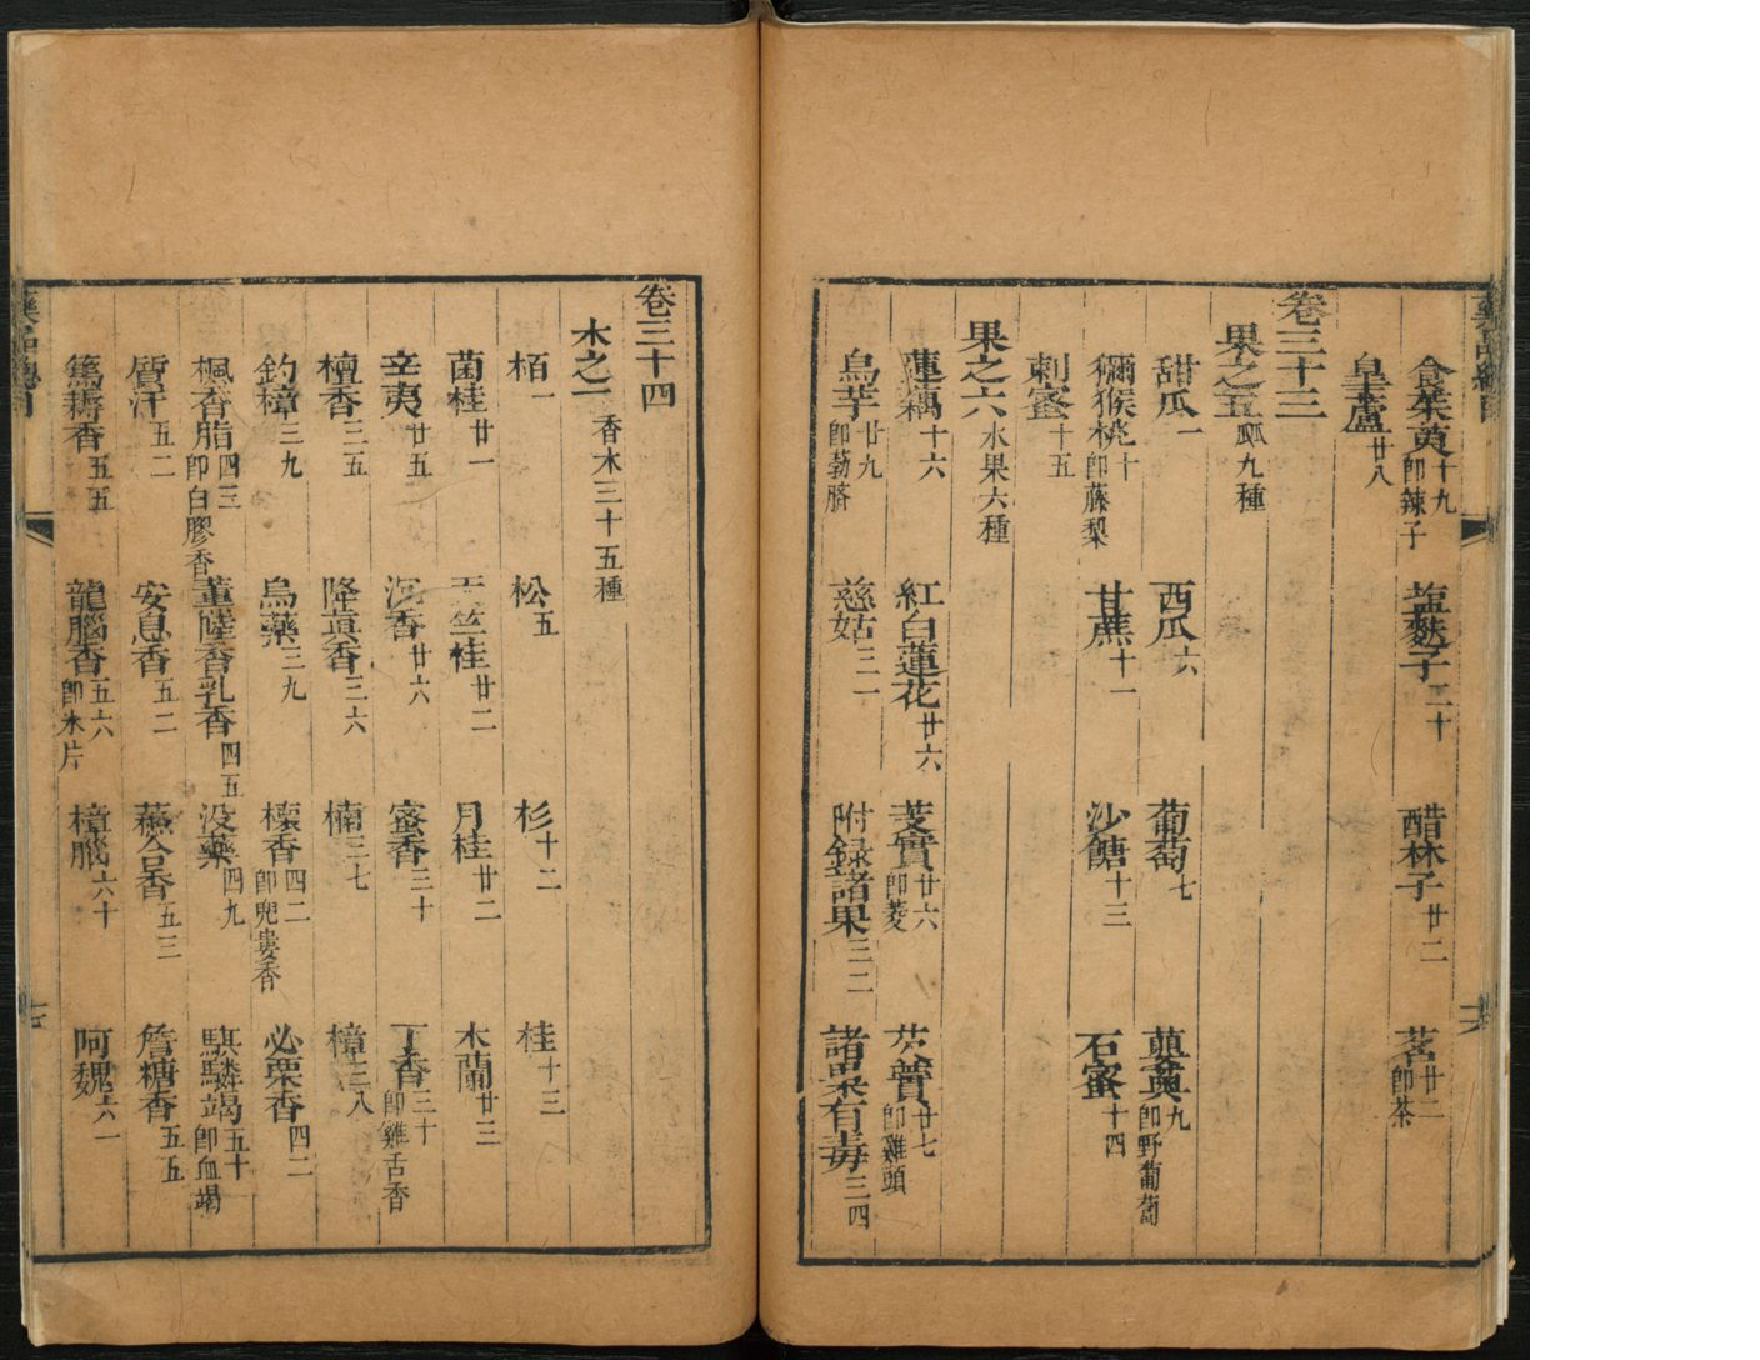 食茱萸十九即辣子 塩麩子二十 醋林子廿二 茗廿二即茶
皐蘆廿八
卷三十三
果之五瓜九種
甜瓜一 西瓜六 葡萄七 蘡薁九即野葡萄
獼猴桃十即藤梨 甘蔗十一 沙餹十三 石蜜十四
刺蜜十五
果之六水果六種
蓮藕十六 紅白蓮花廿六 芰實廿六即菱 芡實廿七即雞頭
烏芋廿九即葧臍 慈姑三一 附録諸果三二 諸果有毒三四
卷三十四
木之一香木三十五種
栢一 松五 杉十二 桂十三
菌桂廿一 天竺桂廿二 月桂廿二 木蘭廿三
辛夷廿五 沉香廿六 蜜香三十 丁香三十即雞舌香
檀香三五 降真香三六 楠三七 樟三八
釣樟三九 烏藥三九 櫰香四二即兜婁香 必栗香四二
楓香脂四三即白膠香 薫陸香乳香四五 没藥四九 騏驎竭五十即血竭
質汗五二 安息香五二 蘇合香五三 詹糖香五五
篤耨香五五 龍腦香五六即氷片 樟腦六十 阿魏六一